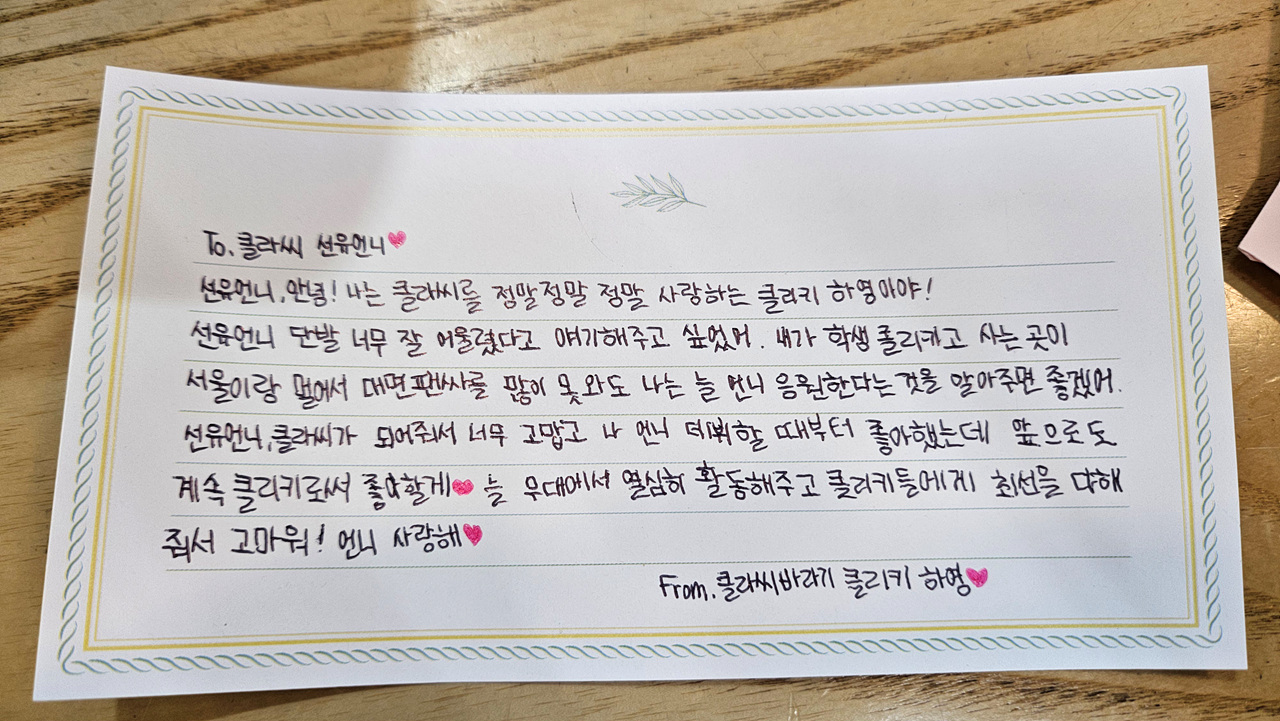 To. 클라씨 선유언니♥
선유언니, 안녕! 나는 클라씨를 정말정말 정말 사랑하는 클리키 하영이야!
선유언니 단발 너무 잘 어울렸다고 얘기해주고 싶었어. 내가 학생 클리키고 사는 곳이
서울이랑 멀어서 대면팬싸를 많이 못와도 나는 늘 언니 응원한다는 것을 알아주면 좋겠어.
선유언니, 클라씨가 되어줘서 너무 고맙고 나 언니 데뷔할 때부터 좋아했는데 앞으로도
계속 클리키로써 좋아할게♥ 늘 무대에서 열심히 활동해주고 클리키들에게 최선을 다해
줘서 고마워! 언니 사랑해♥
From. 클라씨바라기 클리키 하영♥